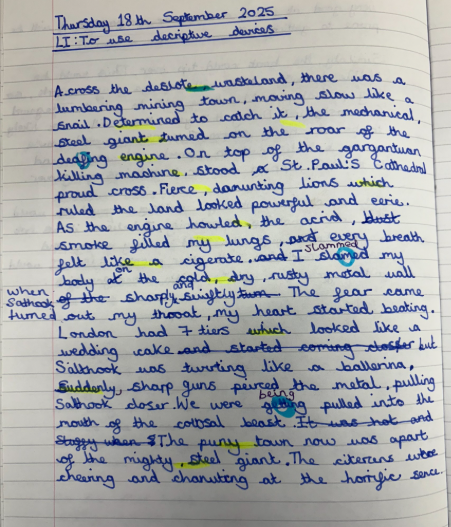 Thursday 18th September 2025
LI: To use decriptive devices
Across the deslote wasteland, there was a
lumbering mining town, moving slow like a
snail. Determined to catch it, the mechanical,
steel giant turned on the roar of the
deafing engine. On top of the gargantuan
killing machine, stood a St. Paul's Cathedral
proud cross. Fierce, daunting lions which
ruled the land looked powerful and eerie.
As the engine howled, the acrid, dust
smoke filled my lungs, and every breath
slammed
felt like a cigerate, and I slamed my
on
body at the cold, dry, rusty metal wall
when Sathook turned
and
of the sharply swiftly turn. The fear came
out my throat, my heart started beating.
London had 7 tiers which looked like a
wedding cake and started coming closer but
Salthook was twirting like a ballerina,
Suddenly, sharp guns perced the metal, pulling
being
Sathook closer. We were pulled into the
mouth of the colosal beast. It was hot and
Stuggy when The puny town now was apart
of the mighty, steel giant. The citerans were
cheering and chanuting at the horrific sence.